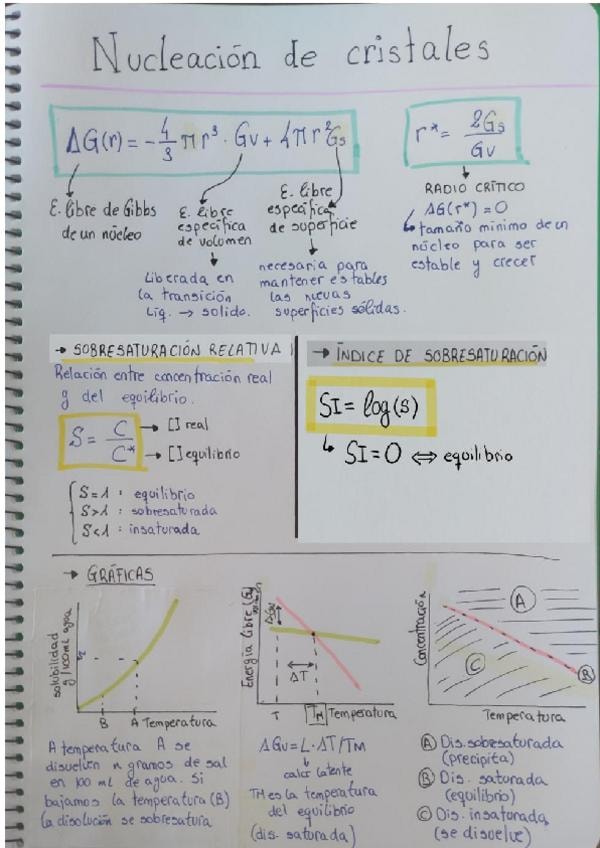 Nucleación de cristales
ΔG(r) = -4/3 π r³ · Gv + 4π r² Gs
r* = 2Gs/Gv
E. libre de Gibbs
de un núcleo
E. libre
específica
de volumen
liberada en
la transición
Liq. → solido.
E. libre
específica
de superficie
necesaria para
mantener estables
las nuevas
superficies sólidas.
RADIO CRÍTICO
ΔG(r*) = 0
tamaño mínimo de un
núcleo para ser
estable y crecer
→ SOBRESATURACIÓN RELATIVA
Relación entre concentración real
y del equilibrio.
S = C/C*
→ [] real
→ [] equilibrio
S=1 : equilibrio
S>1 : sobresaturada
S<1 : insaturada
→ ÍNDICE DE SOBRESATURACIÓN
SI = log(s)
SI = 0 ⇔ equilibrio
→ GRÁFICAS
solubilidad
g/100ml agua
B A Temperatura
A temperatura A se
disuelven n gramos de sal
en 100 mL de agua. Si
bajamos la temperatura (B)
la disolución se sobresatura
Energía libre (Gv)
ΔGv
ΔT
T TM Temperatura
ΔGv = L · ΔT/TM
calor latente
TM es la temperatura
del equilibrio
(dis. saturada)
Concentración
A
C
B
Temperatura
A Dis. sobresaturada
(precipita)
B Dis. saturada
(equilibrio)
C Dis. insaturada
(se disuelve)